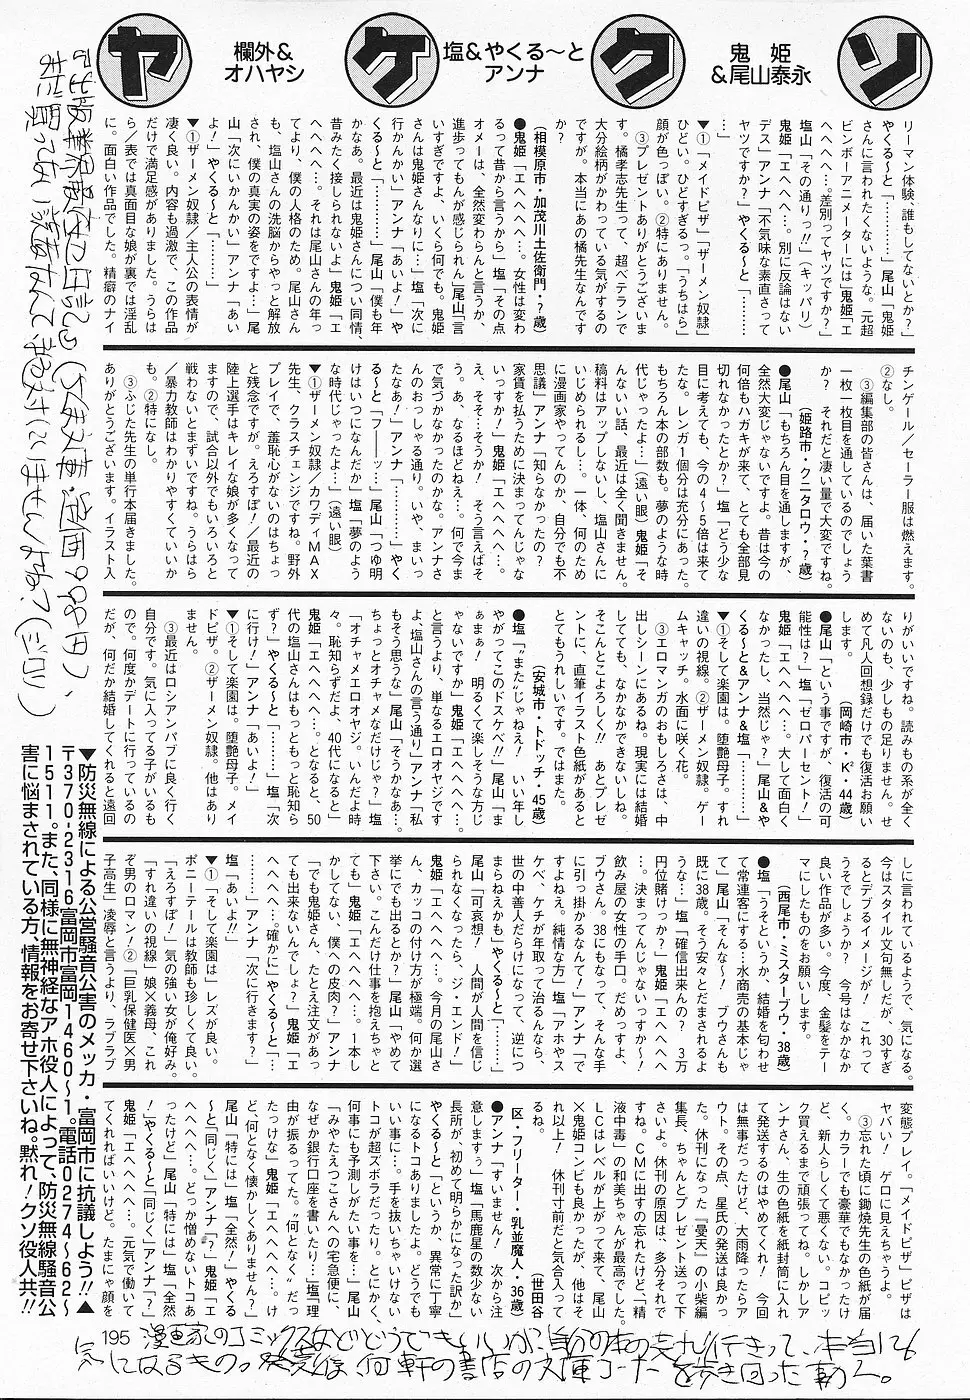 ソ
鬼姫
&尾山泰永
ク
塩&やくる〜と
アンナ
ケ
欄外&
オハヤシ
ヤ
リーマン体験、誰もしてないとか?」
やくる〜と「…………」尾山「鬼姫
さんに言われたくないような。元超
ビンボーアニメーターには」鬼姫「エ
ヘヘヘヘ…。差別ってヤツですか?」
塩山「その通りっ!!」(キッパリ)
鬼姫「エヘヘヘ…。別に反論はない
デス」アンナ「不気味な素直さって
ヤツですか?」やくる〜と「………
…」
▼①「メイドビザ」「ザーメン奴隷」
ひどい。ひどすぎるっ。「うちはら」
顔が色っぽい。②特にありません。
③プレゼントありがとうございま
す。橘孝志先生って、超ベテランで
大分絵柄がかわっている気がするの
ですが。本当にあの橘先生なんです
か?
(相模原市・加茂川土佐衛門・?歳)
●鬼姫「エヘヘヘヘ…。女性は変わ
るって昔から言うから」塩「その点
オメーは、全然変わらんと言うか、
進歩ってもんが感じられん」尾山「言
いすぎですよ、いくら何でも。鬼姫
さんは鬼姫さんなりに…」塩「次に
行かんかい」アンナ「あいよ!」や
くる〜と「…………」尾山「僕も年
かなあ。最近は鬼姫さんについ同情、
昔みたく接しられないよ」鬼姫「エ
ヘヘヘヘ…。それは尾山さんの年っ
てより、僕の人格のため。尾山さん
も、塩山さんの洗脳からやっと解放
され、僕の真実の姿をですよ…」尾
山「次にいかんかい」アンナ「あい
よ!」やくる〜と「…………」
▼①ザーメン奴隷/主人公の表情が
凄く良い。内容も過激で、この作品
だけで満足感がありました。うらは
ら/表では真面目な娘が裏では淫乱
に。面白い作品でした。精癖のナイ
チンゲール/セーラー服は燃えます。
②なし。
③編集部の皆さんは、届いた葉書
一枚一枚目を通しているのでしょう
か? それだと凄い量で大変ですね。
(姫路市・クニタロウ・?歳)
●尾山「もちろん目を通しますが、
全然大変じゃないですよ。昔は今の
何倍もハガキが来て、とても全部見
切れなかったとか?」塩「どう少な
目に考えても、今の4〜5倍は来て
たな。レンガ1個分は充分にあった。
もちろん本の部数も。夢のような時
代じゃったよ…」(遠い眼)鬼姫「そ
んないい話、最近は全く聞きません。
稿料はアップしないし、塩山さんに
いじめられるし…。一体、何のため
に漫画家やってんのか、自分でも不
思議」アンナ「知らなかったの?
家賃を払うために決まってんじゃな
いっすか!」鬼姫「エヘヘヘヘ…。
え、そそ…そうか! そう言えばそ
う。あ、なるほどねえ…。何で今ま
で気づかなかったのかな。アンナさ
んのおっしゃる通り。いや、まいっ
たなあ!」アンナ「…………」やく
る〜と「フーーッ」尾山「つゆ明
けはいつになるんだか」塩「夢のよう
な時代じゃったよ…」(遠い眼)
▼①ザーメン奴隷/カワディMAX
先生、クラスチェンジですね。野外
プレイで、羞恥心がないのはちょっ
と残念ですが。えろすぽ!/最近の
陸上選手はキレイな娘が多くなって
ますので、試合以外でもいろいろと
戦わないとまずいですね。うらはら
/暴力教師はわかりやすくていいか
も。②特になし。
③ふじた先生の単行本届きました。
ありがとうございます。イラスト入
りがいいですね。読みもの系が全く
ないのも、少しもの足りません。せ
めて凡人回想録だけでも復活お願い
します。 (岡崎市・K²・44歳)
●尾山「という事ですが、復活の可
能性は?」塩「ゼロパーセント!」
鬼姫「エヘヘヘヘ…。大して面白く
なかったし、当然じゃ?」尾山&や
くる〜と&アンナ&塩「…………」
▼①そして楽園は。堕艶母子。すれ
違いの視線。②ザーメン奴隷。ゲー
ムキャッチ。水面に咲く花。
③エロマンガのおもしろさは、中
出しシーンにあるね。現実には結婚
してても、なかなかできないしね。
そこんとこよろしく!! あとプレゼ
ントに、直筆イラスト色紙があると
とてもうれしいです。ではまた。
(安城市・トドッチ・45歳)
●塩「"また"じゃねえ! いい年し
やがってこのドスケベ!!」尾山「ま
ぁまぁ! 明るくて楽しそうな方じ
ゃないですか」鬼姫「エヘヘヘヘ…。
と言うより、単なるエロオヤジです
よ、塩山さんの言う通り」アンナ「私
もそう思うな」尾山「そうかなあ…。
ちょっとオチャメなだけじゃ?」塩
「オチャメエロオヤジ。いんだよ時
々。恥知らずだよ、40代になると」
鬼姫「エヘヘヘヘ…。となると、50
代の塩山さんはもっともっと恥知ら
ず?」やくる〜と「…………」塩「次
に行け!」アンナ「あいよ!」
▼①そして楽園は。堕艶母子。メイ
ドビザ。②ザーメン奴隷。他はあり
ません。
③最近はロシアンパブに良く行く
自分です。気に入ってる子がいるも
ので。何度かデートに行っているの
だが、何だか結婚してくれると遠回
しに言われているようで、気になる。
今はスタイル文句無しだが、30すぎ
るとデブるイメージが! これって
うそでしょうか? 今号はなかなか
良い作品が多い。今度、金髪をテー
マにしたものをお願いします。
(西尾市・ミスターブウ・38歳)
●塩「うそというか、結婚を匂わせ
て常連客にする…水商売の基本じゃ
て」尾山「そんな〜! ブウさんも
既に38歳。そう安々とだまされるよ
うな…」塩「確信出来んの? 3万
円位賭けっか?」鬼姫「エヘヘヘヘ
…。決まってんじゃないっすか〜!
飲み屋の女性の手口。だめっすよ、
ブウさん。38にもなって、そんな手
に引っ掛かるなんて!」アンナ「で
すよねえ。純情な方」塩「アホでス
ケベ、ケチが年取って治るんなら、
世の中善人だらけになって、逆につ
まらねえかも」やくる〜と「………」
尾山「可哀想! 人間が人間を信じ
られなくなったら、ジ・エンド!」
鬼姫「エヘヘヘヘ…。今月の尾山さ
ん、カッコの付け方が極端。何か選
挙にでも出るとか?」尾山「やめて
下さい。こんだけ仕事を抱えちゃっ
ても」鬼姫「エヘヘヘヘ…。1本し
かしてない、僕への皮肉?」アンナ
「でも鬼姫さん、たとえ注文があっ
ても出来ないんでしょ?」鬼姫「エ
ヘヘヘヘ…。確かに」やくる〜と「…
………」アンナ「次に行きます?」
塩「あいよ!!」
▼①「そして楽園は」レズが良い。
ポニーテールは教師も珍しくて良い。
「えろすぽ!」気の強い女が俺好み。
「すれ違いの視線」娘×義母、これ
ぞ男のロマン!②「巨乳保健医×男
子高生」凌辱と言うより、ラブラブ
変態プレイ。「メイドビザ」ビザは
ヤバい! ゲロに見えちゃうよ。
③忘れた頃に鋤焼先生の色紙が届
く。カラーでも豪華でもなかったけ
ど、新人らしくて悪くない。コピッ
ク買えるまで頑張ってね。しかしア
ンナさん、生の色紙を紙封筒に入れ
て発送するのはやめてくれ! 今回
は無事だったけど、大雨降ったらア
ウト。その点、星氏の発送は良かっ
た。休刊になった『曼天』の小柴編
集長、ちゃんとプレゼント送って下
さいよ。休刊の原因は、多分それで
すね。CMに出すの忘れたけど、「精
液中毒」の和美ちゃんが最高でした。
LCはレベルが上がって来て、尾山
×鬼姫コンビも良かったが、他はそ
れ以上! 休刊寸前だと気合入って
るね。 (世田谷
区・フリーター・乳並魔人・36歳)
●アンナ「すいません! 次から注
意しますぅ」塩「馬鹿星の数少ない
長所が、初めて明らかになった訳か」
やくる〜と「というか、異常に丁寧
になるトコありましたよ。どうでも
いい事に…。手を抜いちゃいけない
トコが超ズボラだったり。とにかく、
何事にも予測しがたい事を…」尾山
「みやたえつこさんへの宅急便に、
なぜか銀行口座を書いたり…」塩「理
由が振るってた。"何となく、だっ
たっけな」鬼姫「エヘヘヘヘ…。け
ど、何となく懐かしくありません?」
尾山「特には」塩「全然!」やくる
〜と「同じく」アンナ「?」鬼姫「エ
ヘヘヘヘ…。どっか憎めないトコあ
ったけど」尾山「特には」塩「全然
!」やくる〜と「同じく」アンナ「?」
鬼姫「エヘヘヘヘ…。元気で働いて
てくれればいいけど。たまにゃ顔を
▼防災無線による公営騒音公害のメッカ・富岡市に抗議しよう!!▲
〒370-2316富岡市富岡1460〜1。電話0274〜62〜
1511。また、同様に無神経なアホ役人によって、防災無線騒音公
害に悩まされている方、情報をお寄せ下さいね。黙れ!クソ役人共!!
195
漫画家のコミックスなどどうでもいいが、自分の本の売れ行きって、本当に
気になるもの。発売後、何軒の書店の文庫コーナーを歩き回った事か。